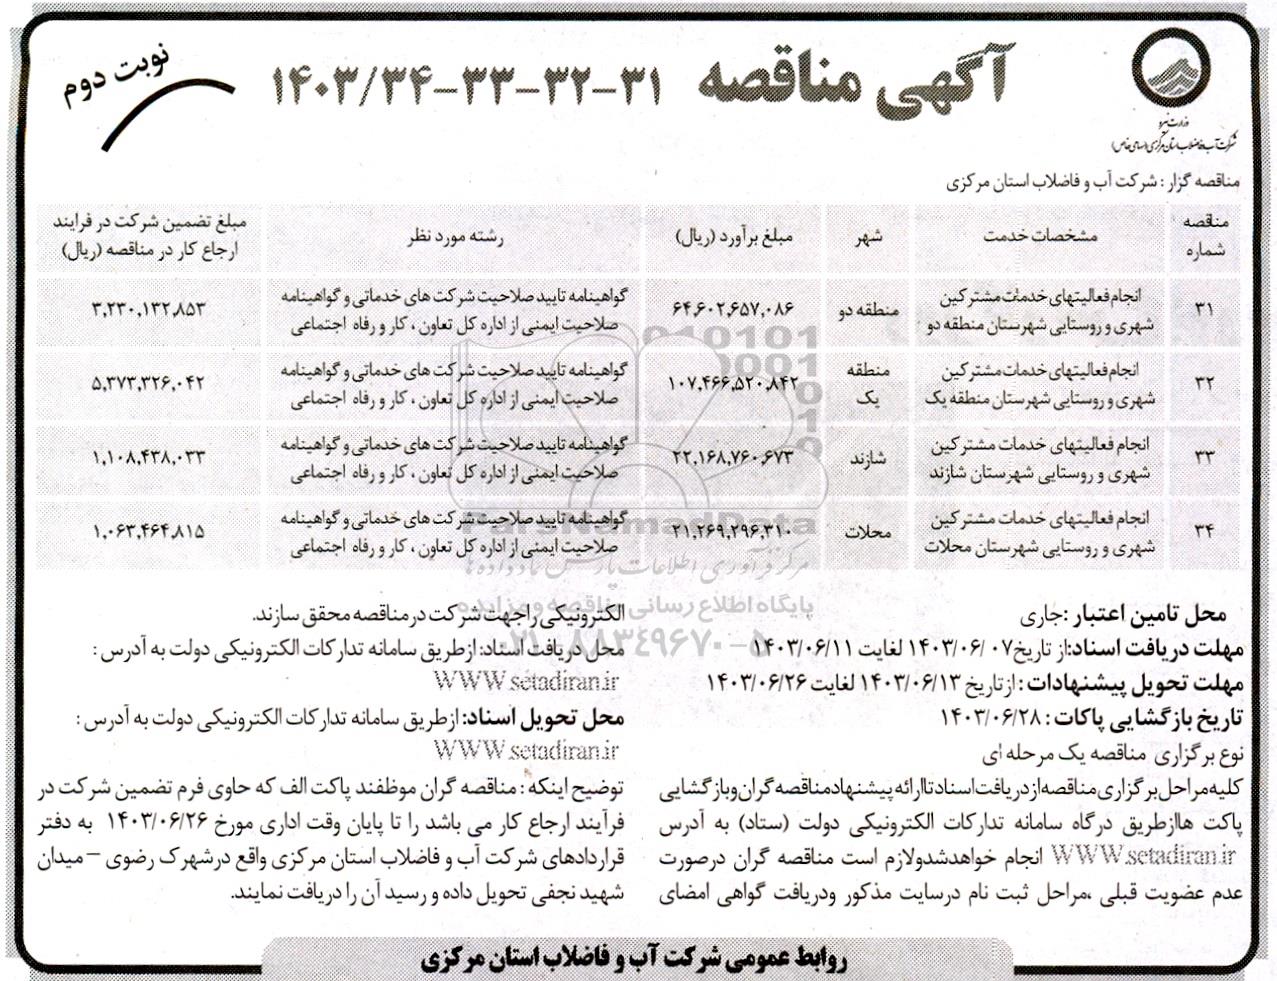 آگهی مناقصه ۳۱-۳۲-۳۳-۱۴۰۳/۳۴
نوبت دوم
وزارت نیرو
شرکت آب و فاضلاب استان مرکزی (سهامی خاص)
مناقصه گزار : شرکت آب و فاضلاب استان مرکزی
مناقصه شماره | مشخصات خدمت | شهر | مبلغ برآورد (ریال) | رشته مورد نظر | مبلغ تضمین شرکت در فرایند ارجاع کار در مناقصه (ریال)
۳۱ | انجام فعالیتهای خدمات مشترکین شهری و روستایی شهرستان منطقه دو | منطقه دو | ۶۴,۶۰۲,۶۵۷,۰۸۶ | گواهینامه تایید صلاحیت شرکت های خدماتی و گواهینامه صلاحیت ایمنی از اداره کل تعاون ، کار و رفاه اجتماعی | ۳,۲۳۰,۱۳۲,۸۵۳
۳۲ | انجام فعالیتهای خدمات مشترکین شهری و روستایی شهرستان منطقه یک | منطقه یک | ۱۰۷,۴۶۶,۵۲۰,۸۴۲ | گواهینامه تایید صلاحیت شرکت های خدماتی و گواهینامه صلاحیت ایمنی از اداره کل تعاون ، کار و رفاه اجتماعی | ۵,۳۷۳,۳۲۶,۰۴۲
۳۳ | انجام فعالیتهای خدمات مشترکین شهری و روستایی شهرستان شازند | شازند | ۲۲,۱۶۸,۷۶۰,۶۷۳ | گواهینامه تایید صلاحیت شرکت های خدماتی و گواهینامه صلاحیت ایمنی از اداره کل تعاون ، کار و رفاه اجتماعی | ۱,۱۰۸,۴۳۸,۰۳۳
۳۴ | انجام فعالیتهای خدمات مشترکین شهری و روستایی شهرستان محلات | محلات | ۲۱,۲۶۹,۲۹۶,۳۱۰ | گواهینامه تایید صلاحیت شرکت های خدماتی و گواهینامه صلاحیت ایمنی از اداره کل تعاون ، کار و رفاه اجتماعی | ۱,۰۶۳,۴۶۴,۸۱۵
ParsNamadData
مرکز فرآوری اطلاعات پارس نماد داده ها
پایگاه اطلاع رسانی مناقصه و مزایده
۰۲۱-۸۸۳۴۹۶۷۰-۵
محل تامین اعتبار :جاری
مهلت دریافت اسناد:از تاریخ۱۴۰۳/۰۶/۰۷ لغایت ۱۴۰۳/۰۶/۱۱
مهلت تحویل پیشنهادات : ازتاریخ ۱۴۰۳/۰۶/۱۳ لغایت ۱۴۰۳/۰۶/۲۶
تاریخ بازگشایی پاکات : ۱۴۰۳/۰۶/۲۸
نوع برگزاری مناقصه یک مرحله ای
کلیه مراحل برگزاری مناقصه از دریافت اسناد تا ارائه پیشنهاد مناقصه گران و بازگشایی
پاکت هااز طریق درگاه سامانه تدارکات الکترونیکی دولت (ستاد) به آدرس
WWW.setadiran.ir انجام خواهدشدولازم است مناقصه گران درصورت
عدم عضویت قبلی ،مراحل ثبت نام درسایت مذکور ودریافت گواهی امضای
الکترونیکی را جهت شرکت در مناقصه محقق سازند.
محل دریافت اسناد: ازطریق سامانه تدارکات الکترونیکی دولت به آدرس :
WWW.setadiran.ir
محل تحویل اسناد: ازطریق سامانه تدارکات الکترونیکی دولت به آدرس :
WWW.setadiran.ir
توضیح اینکه : مناقصه گران موظفند پاکت الف که حاوی فرم تضمین شرکت در
فرآیند ارجاع کار می باشد را تا پایان وقت اداری مورخ ۱۴۰۳/۰۶/۲۶ به دفتر
قراردادهای شرکت آب و فاضلاب استان مرکزی واقع درشهرک رضوی – میدان
شهید نجفی تحویل داده و رسید آن را دریافت نمایند.
روابط عمومی شرکت آب و فاضلاب استان مرکزی